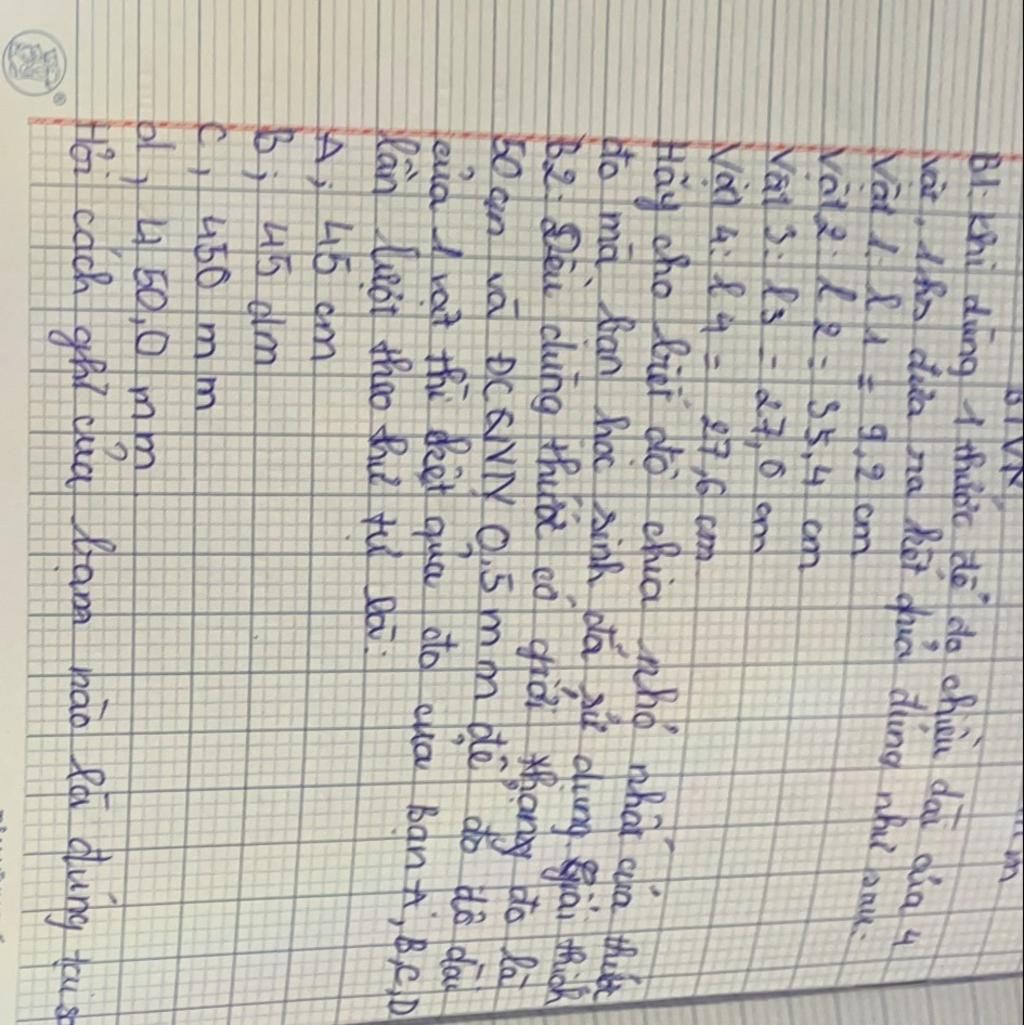 BTVN
B1: Khi dùng 1 thước để đo chiều dài của 4
vật, 1 hs đưa ra kết quả đúng như sau:
Vật 1: l1 = 9,2 cm
Vật 2: l2 = 35,4 cm
Vật 3: l3 = 27,6 cm
Vật 4: l4 = 27,6 cm
Hãy cho biết độ chia nhỏ nhất của thước
đo mà bạn học sinh đã sử dụng. Giải thích
B2: Đều dùng thước có giới thạng đo là
50 cm và ĐCNN 0,5 mm để đo độ dài
của 1 vật thì kết quả đo của bạn A, B, C, D
lần lượt theo thứ tự là:
A, 45 cm
B, 45 dm
C, 450 mm
d, 450,0 mm
Hỏi cách ghi của bạn nào là đúng tại s